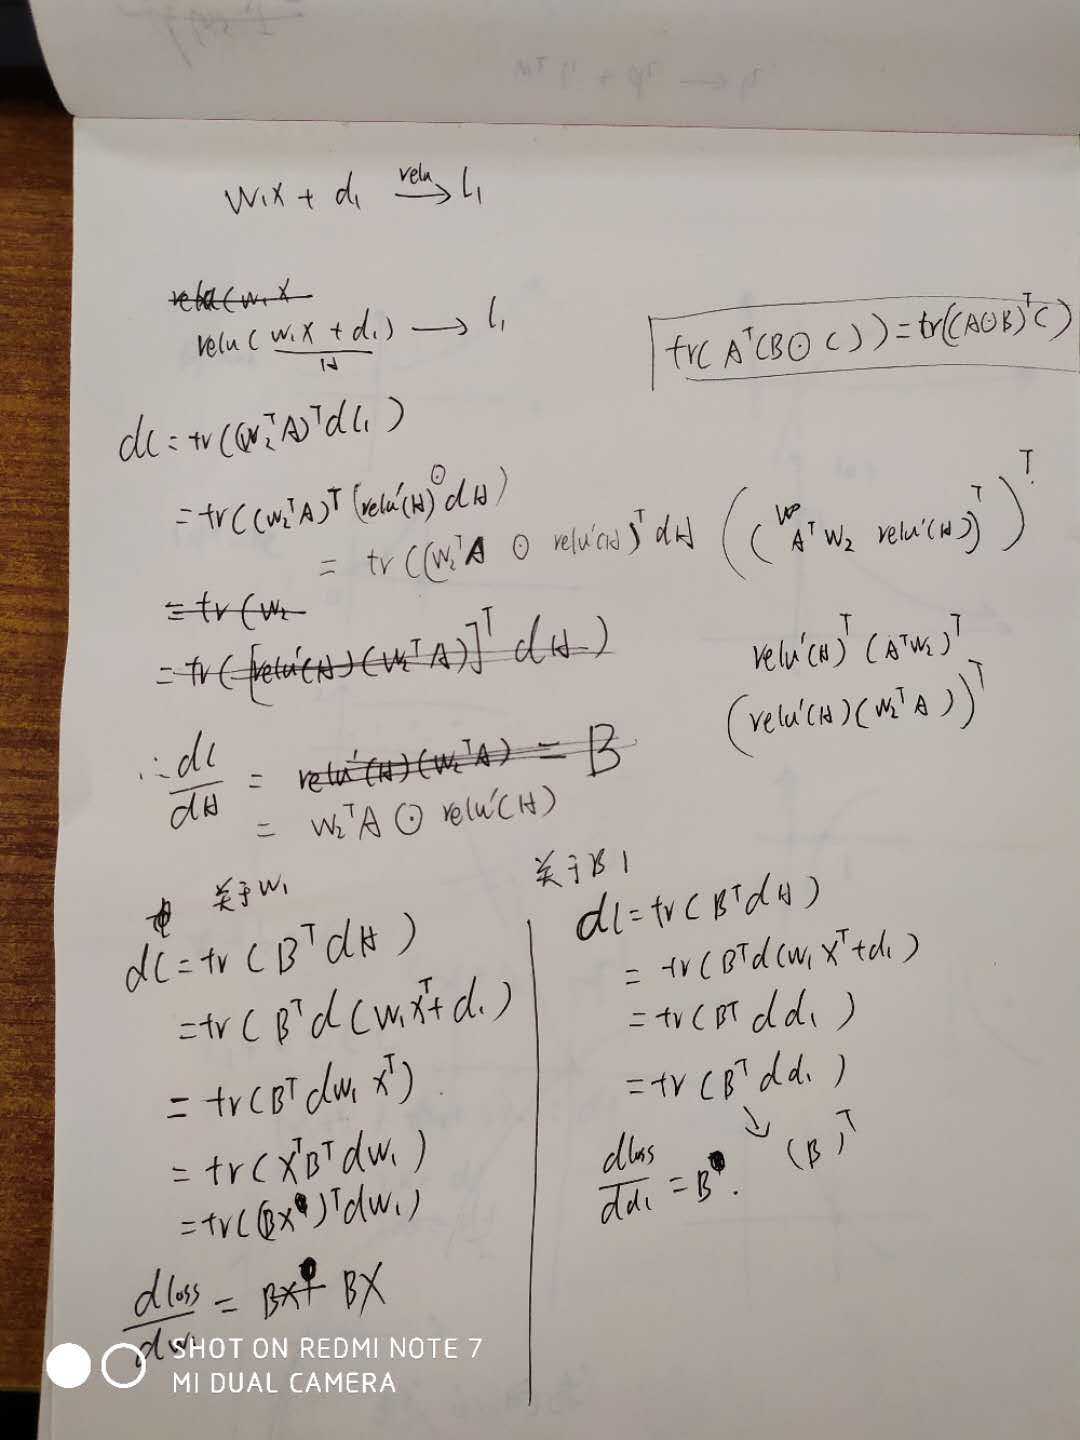 W₁X + d₁ —relu→ l₁
relu(W₁X
relu(W₁X + d₁) → l₁
H
tr(Aᵀ(B⊙C)) = tr((A⊙B)ᵀC)
dl = tr((W₂ᵀA)ᵀdl₁)
= tr((W₂ᵀA)ᵀ(relu'(H)⊙dH)
= tr((W₂ᵀA ⊙ relu'(H))ᵀdH
((AᵀW₂ relu'(H))ᵀ)ᵀ
= tr(W₂
= tr([relu'(H)(W₂ᵀA)]ᵀdH)
relu'(H)ᵀ(AᵀW₂)ᵀ
(relu'(H)(W₂ᵀA))ᵀ
∴ dl/dH = relu'(H)(W₂ᵀA) = B
= W₂ᵀA ⊙ relu'(H)
关于W₁
dl = tr(BᵀdH)
= tr(Bᵀd(W₁Xᵀ+d₁)
= tr(BᵀdW₁Xᵀ)
= tr(XᵀBᵀdW₁)
= tr((BX)ᵀdW₁)
dloss/dW₁ = BX BX
关于B1
dl = tr(BᵀdH)
= tr(Bᵀd(W₁Xᵀ+d₁)
= tr(Bᵀdd₁)
= tr(Bᵀdd₁)
↘ (B)ᵀ
dloss/dd₁ = B.
SHOT ON REDMI NOTE 7
MI DUAL CAMERA